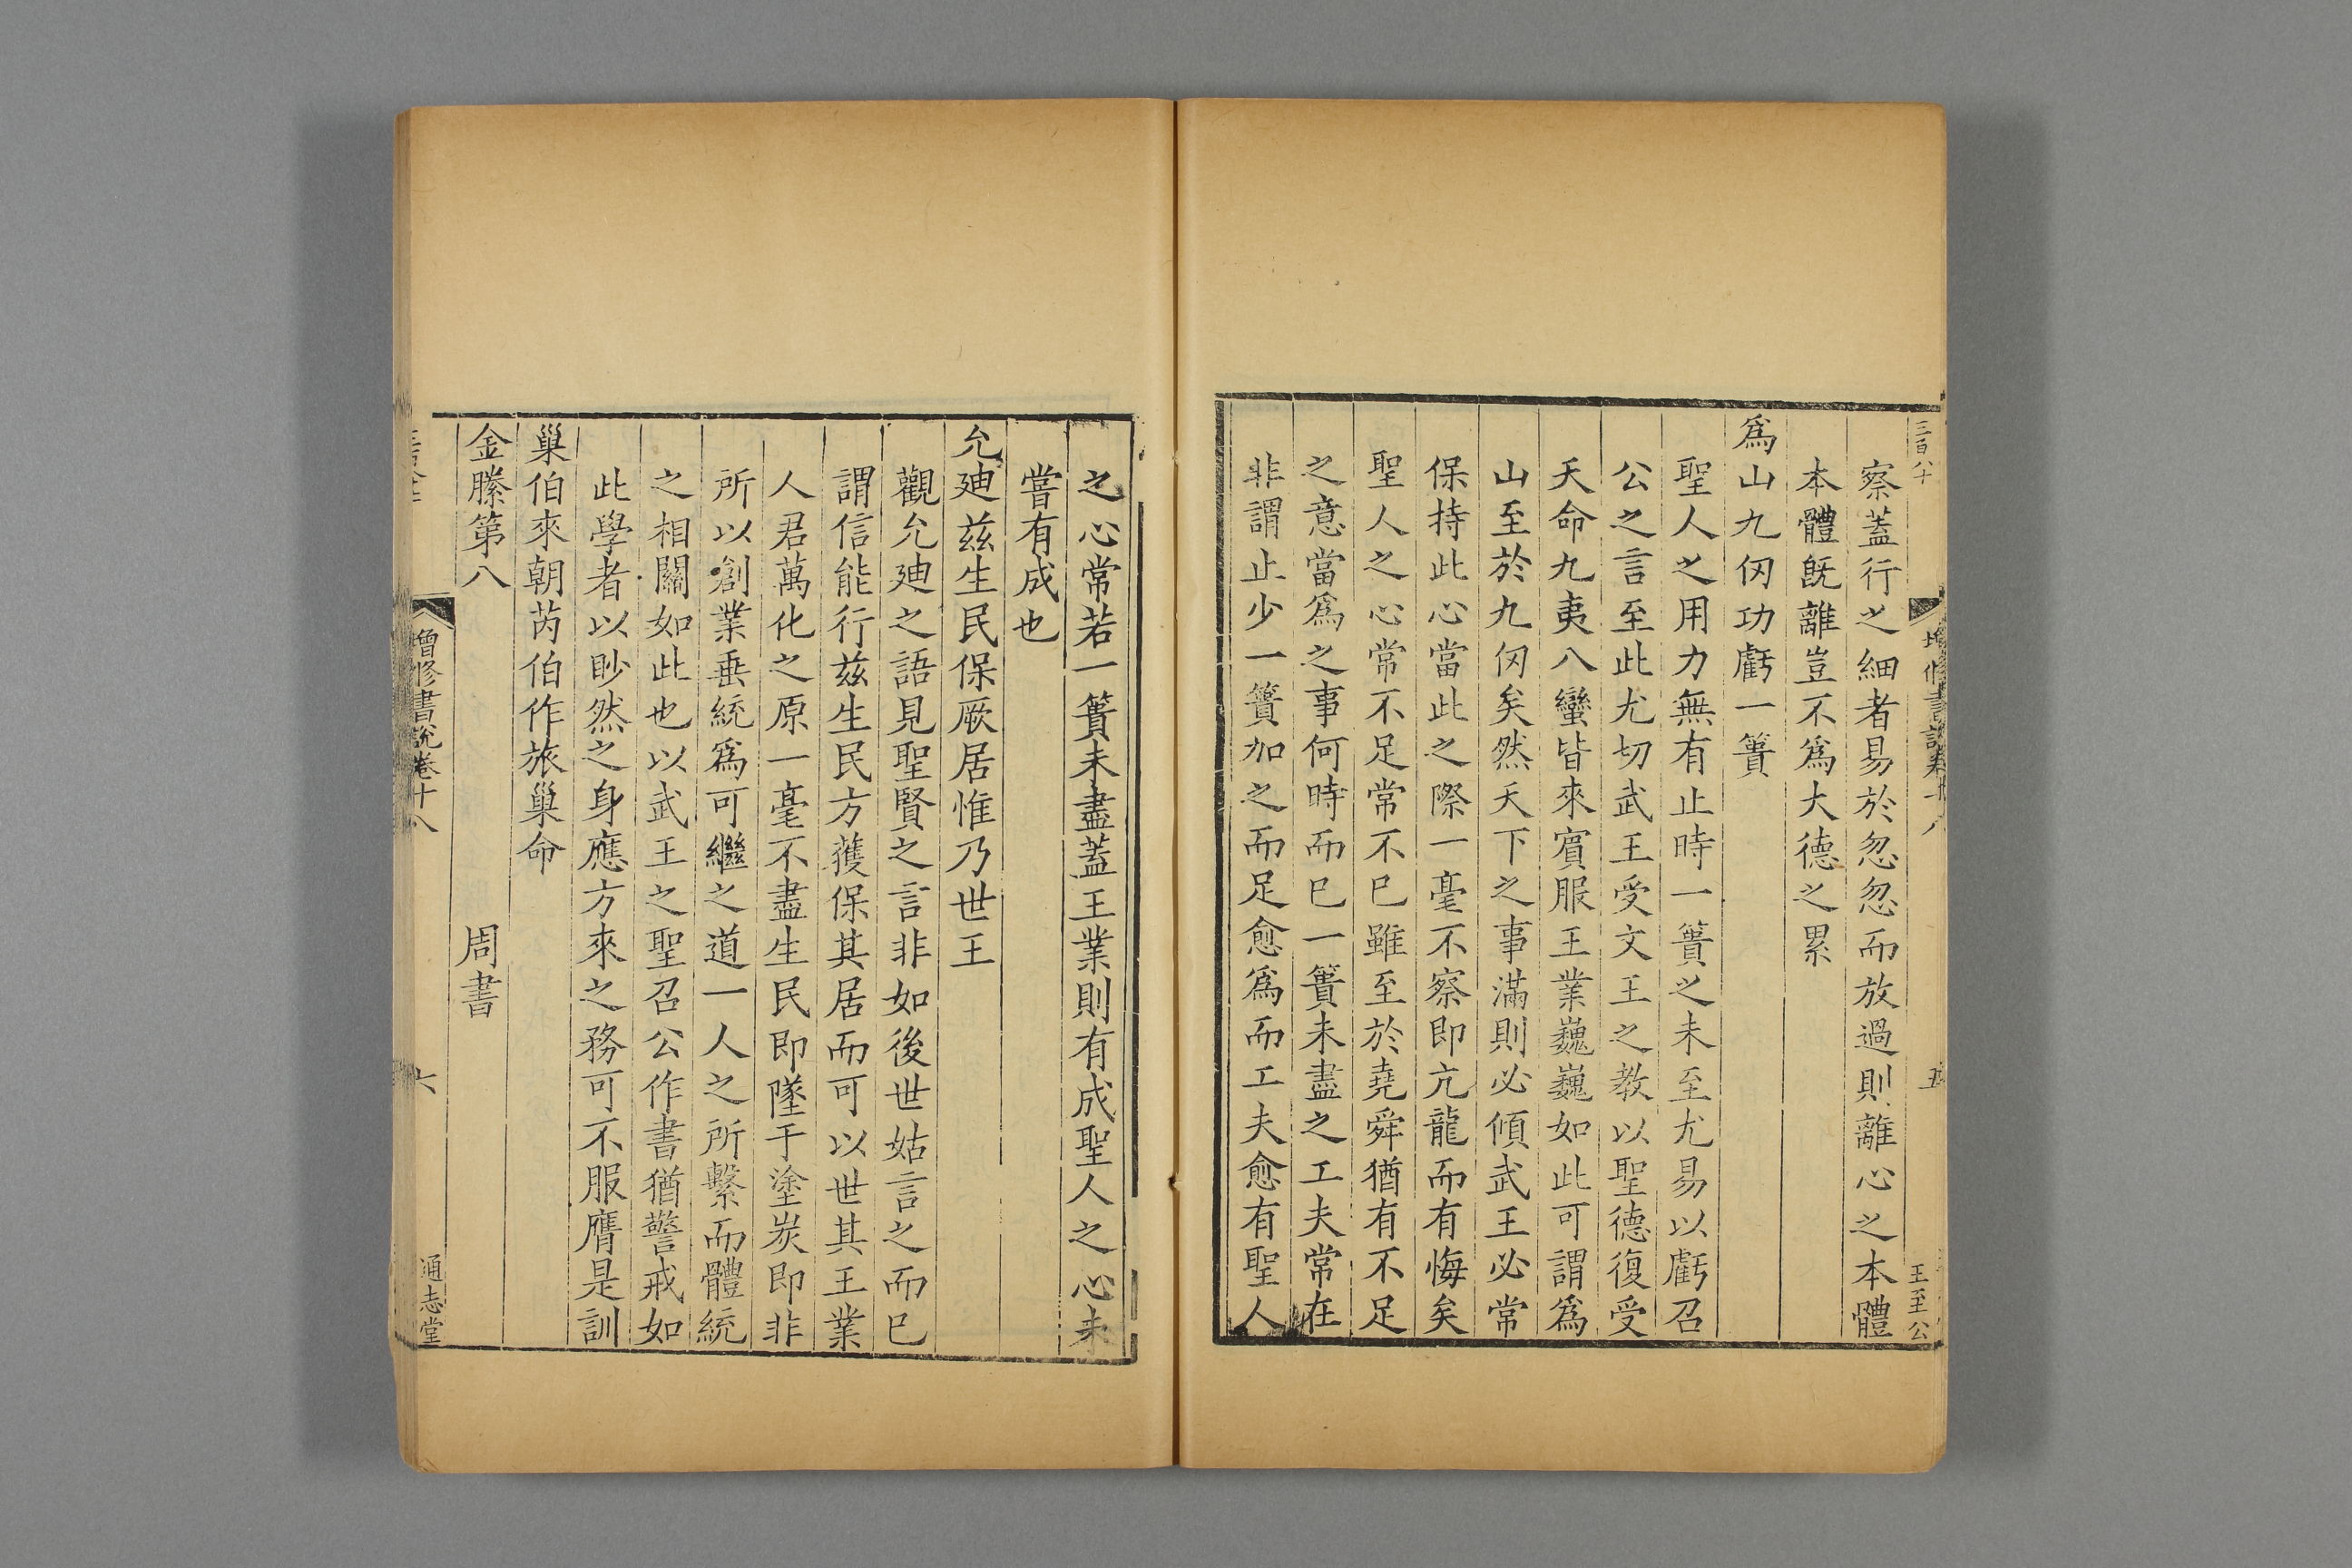 三百八十
增修書說卷十八
五
王至公
察蓋行之細者易於忽忽而放過則離心之本體
本體旣離豈不爲大德之累
爲山九仭功虧一簣
聖人之用力無有止時一簣之未至尤易以虧召
公之言至此尤切武王受文王之教以聖德復受
天命九夷八蠻皆來賓服王業巍巍如此可謂爲
山至於九仭矣然天下之事滿則必傾武王必常
保持此心當此之際一毫不察即亢龍而有悔矣
聖人之心常不足常不已雖至於堯舜猶有不足
之意當爲之事何時而已一簣未盡之工夫常在
非謂止少一簣加之而足愈爲而工夫愈有聖人
之心常若一簣未盡蓋王業則有成聖人之心未
嘗有成也
允迪兹生民保厥居惟乃世王
觀允迪之語見聖賢之言非如後世姑言之而已
謂信能行兹生民方獲保其居而可以世其王業
人君萬化之原一毫不盡生民即墜于塗炭即非
所以創業垂統爲可繼之道一人之所繫而體統
之相關如此也以武王之聖召公作書猶警戒如
此學者以眇然之身應方來之務可不服膺是訓
巢伯來朝芮伯作旅巢命
金縢第八 周書
增修書說卷十八
六
通志堂